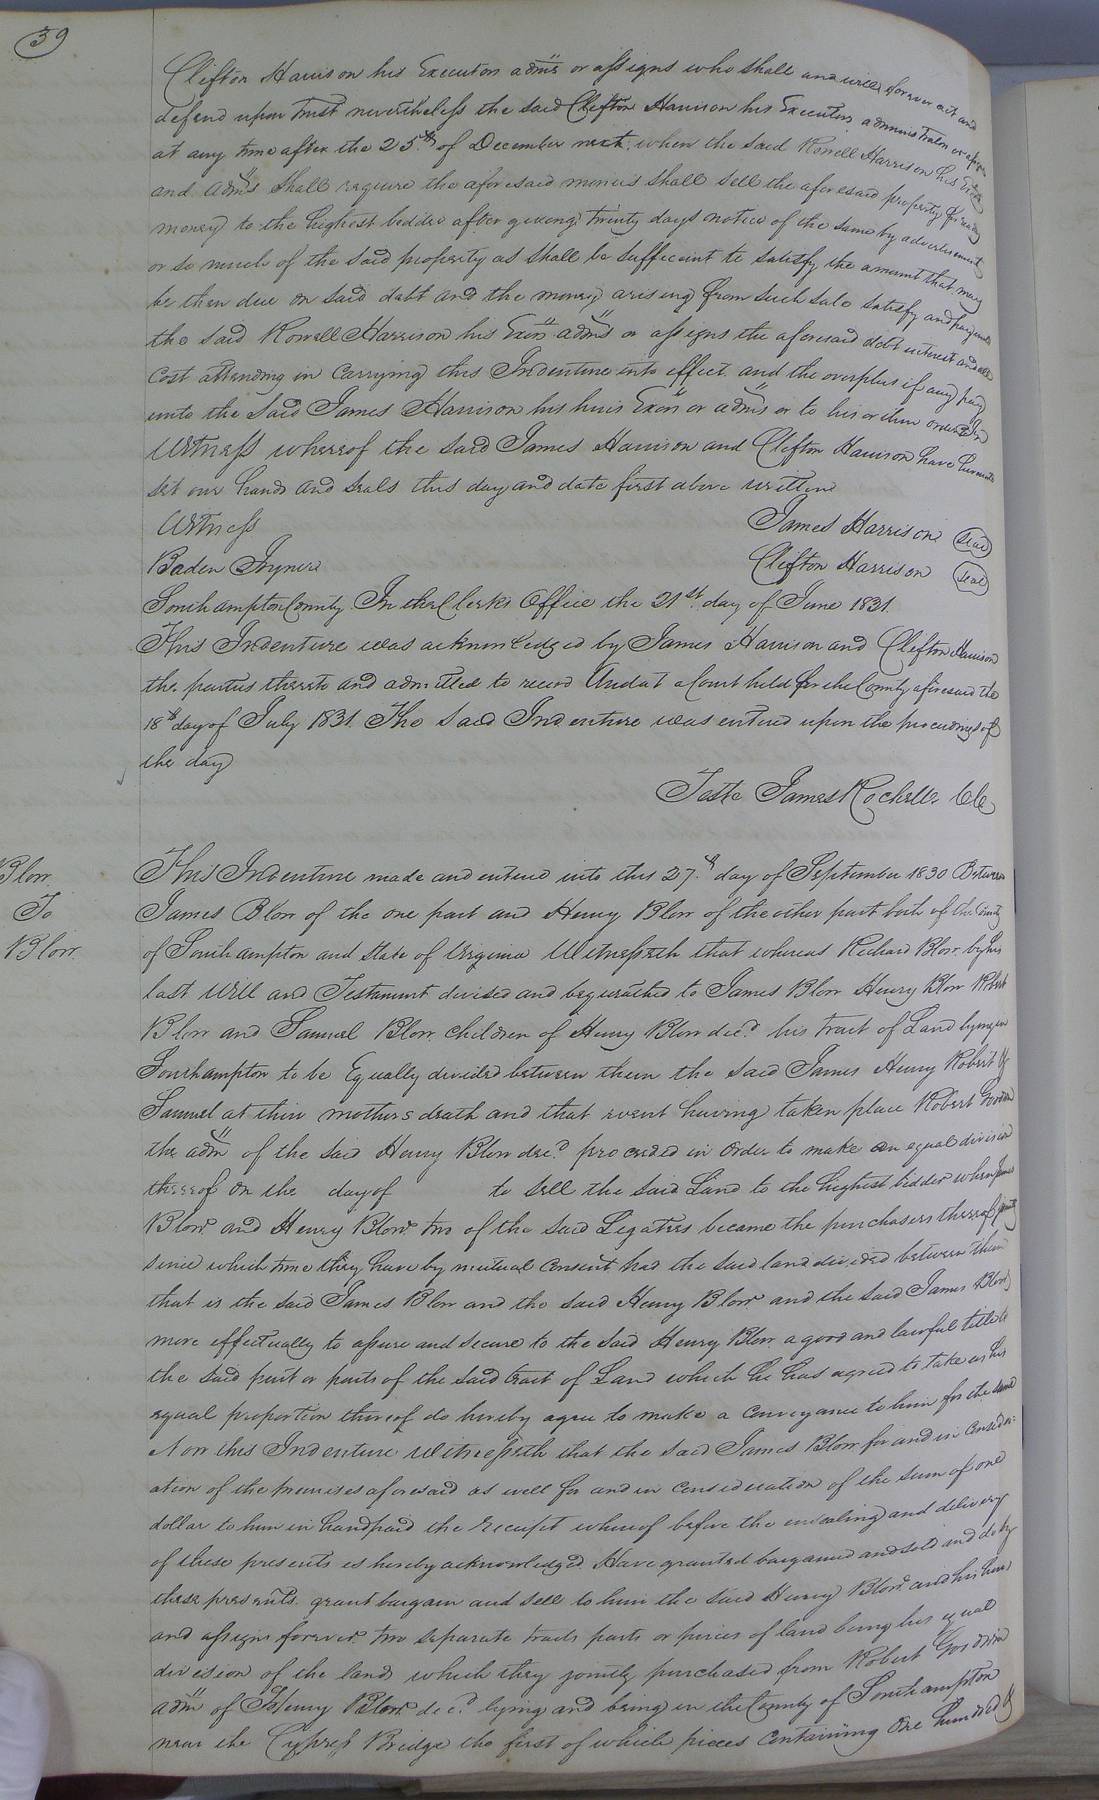 39
Clifton Harrison his Executors admrs or assigns who shall and will forever act and
defend upon trust nevertheless the said Clifton Harrison his Executors administrators or assigns
at any time after the 25th of December next when the said Rowell Harrison his Exors
and admrs shall require the aforesaid monies shall sell the aforesaid property for ready
money to the highest bidder after giveing twenty days notice of the same by advertisement
or so much of the said property as shall be sufficeint to satisfy the amount that may
be then due on said debt and the money arising from such sale satisfy and pay unto
the said Rowell Harrison his Exors admrs or assigns the aforesaid debt interest and all
Cost attending in Carrying this Indenture into effect and the overplus if any pay
unto the said James Harrison his heirs Exors or admrs or to his or their order In
Witness whereof the said James Harrison and Clifton Harrison have hereunto
set our hands and seals this day and date first above written
Witness James Harrison seal
Baden Joyner Clifton Harrison seal
Southampton County In the Clerks Office the 21st day of June 1831.
This Indenture was acknowledged by James Harrison and Clifton Harrison
the parties thereto and admitted to record And at a Court held for the County aforesaid the
18th day of July 1831 The said Indenture was entered upon the proceedings of
the day
Teste James Rochelle CC
Blow
To
Blow
This Indenture made and entered into this 27th day of September 1830 Between
James Blow of the one part and Henry Blow of the other part both of the County
of Southampton and State of Virginia Witnesseth that whereas Richard Blow by his
last Will and Testament devised and bequeathed to James Blow Henry Blow Robert
Blow and Samuel Blow children of Henry Blow decd his tract of Land lying in
Southampton to be Equally devided between them the said James Henry Robert &
Samuel at their mothers death and that event having taken place Robert Goodwin
the admr of the said Henry Blow decd proceeded in order to make an equal division
thereof on the day of to sell the said Land to the highest bidder when James
Blow and Henry Blow two of the said Legatees became the purchasers thereof jointly
since which time they have by mutual consent had the said land devided between them
that is the said James Blow and the said Henry Blow and the said James Blow
more effectually to assure and secure to the said Henry Blow a good and lawful title to
the said part or parts of the said tract of Land which he has agreed to take as his
equal proportion thereof do hereby agree to make a conveyance to him for the same
Now this Indenture Witnesseth that the said James Blow for and in consider-
ation of the premises aforesaid as well for and in consideration of the sum of one
dollar to him in hand paid the receipt whereof before the ensealing and delivery
of these presents is hereby acknowledged. Have granted bargained and sold and do by
these presents grant bargain and sell to him the said Henry Blow and his heirs
and assigns forever two separate tracts parts or pieces of land being his equal
division of the land which they jointly purchased from Robert Goodwin
admr of Henry Blow decd lying and being in the County of Southampton
near the Cypress Bridge the first of which pieces Containing One hundred &